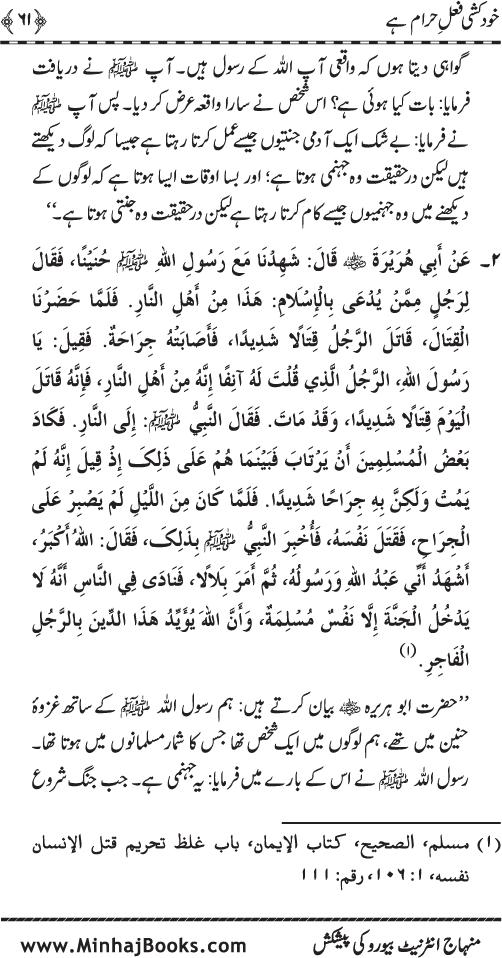 خود کشی فعلِ حرام ہے ﴿۶۱﴾
گواہی دیتا ہوں کہ واقعی آپ اللہ کے رسول ہیں۔ آپ ﷺ نے دریافت
فرمایا: بات کیا ہوئی ہے؟ اس شخص نے سارا واقعہ عرض کر دیا۔ پس آپ ﷺ
نے فرمایا: بے شک ایک آدمی جنتیوں جیسے عمل کرتا رہتا ہے جیسا کہ لوگ دیکھتے
ہیں لیکن درحقیقت وہ جہنمی ہوتا ہے؛ اور بسا اوقات ایسا ہوتا ہے کہ لوگوں کے
دیکھنے میں وہ جہنمیوں جیسے کام کرتا رہتا ہے لیکن درحقیقت وہ جنتی ہوتا ہے۔‘‘
۲۔ عَنْ أَبِي هُرَيْرَةَ ﷺ قَالَ: شَهِدْنَا مَعَ رَسُولِ اللهِ ﷺ حُنَيْنًا، فَقَالَ
لِرَجُلٍ مِمَّنْ يُدْعَى بِالْإِسْلَامِ: هَذَا مِنْ أَهْلِ النَّارِ. فَلَمَّا حَضَرْنَا
الْقِتَالَ، قَاتَلَ الرَّجُلُ قِتَالًا شَدِيدًا، فَأَصَابَتْهُ جِرَاحَةٌ. فَقِيلَ: يَا
رَسُولَ اللهِ، الرَّجُلُ الَّذِي قُلْتَ لَهُ آنِفًا إِنَّهُ مِنْ أَهْلِ النَّارِ، فَإِنَّهُ قَاتَلَ
الْيَوْمَ قِتَالًا شَدِيدًا، وَقَدْ مَاتَ. فَقَالَ النَّبِيُّ ﷺ: إِلَى النَّارِ. فَكَادَ
بَعْضُ الْمُسْلِمِينَ أَنْ يَرْتَابَ فَبَيْنَمَا هُمْ عَلَى ذَلِکَ إِذْ قِيلَ إِنَّهُ لَمْ
يَمُتْ وَلَکِنَّ بِهِ جِرَاحًا شَدِيدًا. فَلَمَّا کَانَ مِنَ اللَّيْلِ لَمْ يَصْبِرْ عَلَى
الْجِرَاحِ، فَقَتَلَ نَفْسَهُ، فَأُخْبِرَ النَّبِيُّ ﷺ بِذَلِکَ، فَقَالَ: اللهُ أَکْبَرُ،
أَشْهَدُ أَنِّي عَبْدُ اللهِ وَرَسُولُهُ، ثُمَّ أَمَرَ بِلَالًا، فَنَادَى فِي النَّاسِ أَنَّهُ لَا
يَدْخُلُ الْجَنَّةَ إِلَّا نَفْسٌ مُسْلِمَةٌ، وَأَنَّ اللهَ يُؤَيِّدُ هَذَا الدِّينَ بِالرَّجُلِ
الْفَاجِرِ. (۱)
’’حضرت ابو ہریرہ بیان کرتے ہیں: ہم رسول اللہ ﷺ کے ساتھ غزوۂ
حنین میں تھے، ہم لوگوں میں ایک شخص تھا جس کا شمار مسلمانوں میں ہوتا تھا۔
رسول اللہ ﷺ نے اس کے بارے میں فرمایا: یہ جہنمی ہے۔ جب جنگ شروع
(۱) مسلم، الصحيح، کتاب الإيمان، باب غلظ تحريم قتل الإنسان
نفسه، ۱: ۱۰۶، رقم: ۱۱۱
منہاج انٹرنیٹ بیورو کی پیشکش www.MinhajBooks.com